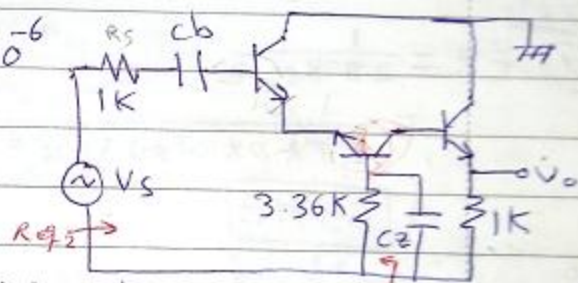 0^-6
Rs
Cb
1K
Vs
Req2
3.36K
Cz
1K
Vo